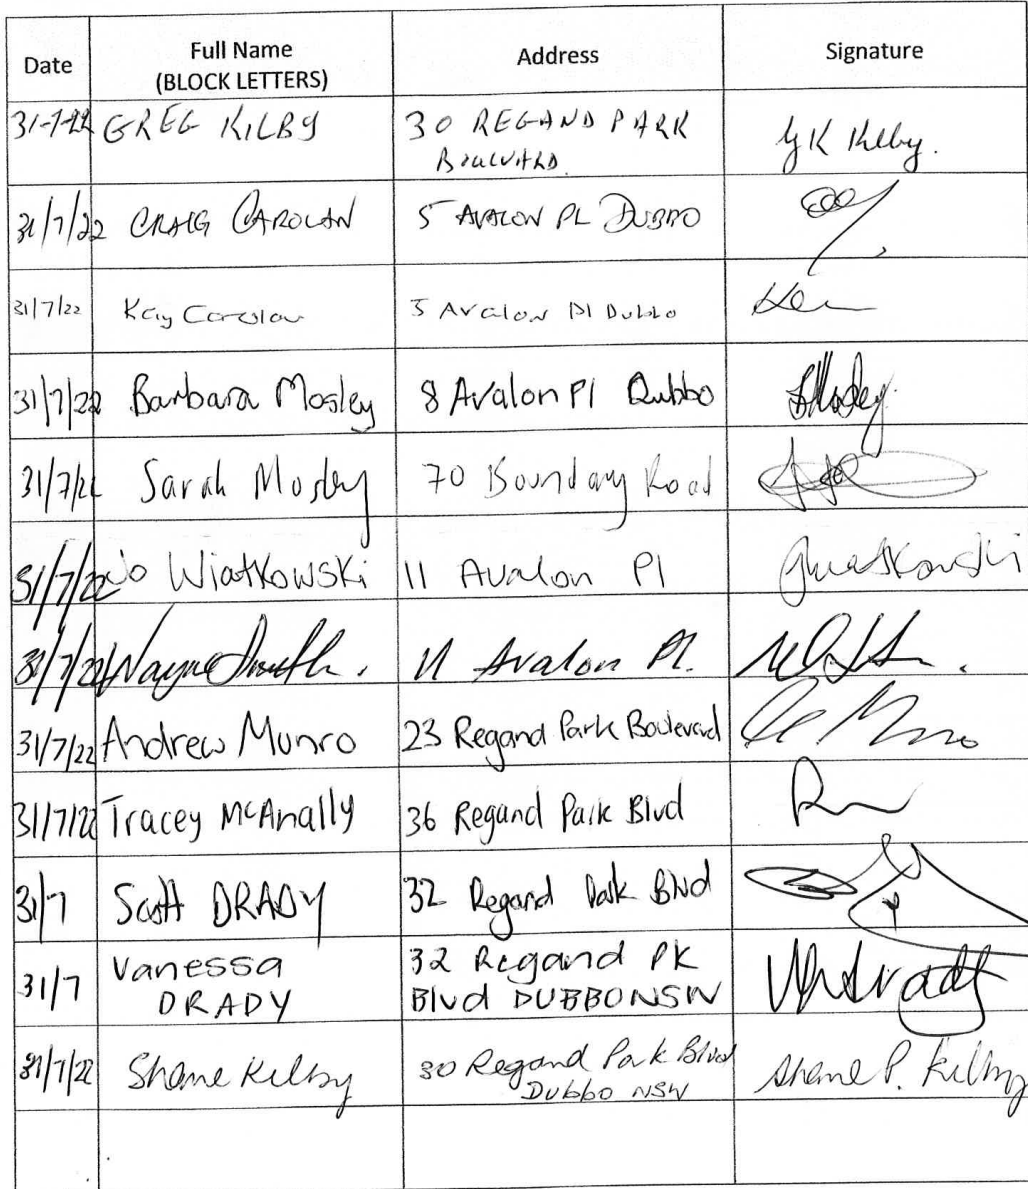 Date Full Name Address Signature
(BLOCK LETTERS)
31-7-22 GREG KILBY 30 REGAND PARK GK Kilby.
BOULVARD.
31/7/22 CRAIG CAROLAN 5 AVALON PL DUBBO
31/7/22 Kay Carolan 5 Avalon Pl Dubbo
31/7/22 Barbara Mosley 8 Avalon Pl Dubbo BMosley
31/7/22 Sarah Mosley 70 Boundary Road
31/7/22 Jo Wiatkowski 11 Avalon Pl JWiatkowski
31/7/22 Wayne Smith. 11 Avalon Pl.
31/7/22 Andrew Munro 23 Regand Park Boulevard Munro
31/7/22 Tracey McAnally 36 Regand Park Blvd
31/7 Scott DRADY 32 Regand Park Blvd
31/7 Vanessa 32 Regand PK VDrady
DRADY Blvd DUBBO NSW
31/7/22 Shane Kilby 30 Regand Park Blvd Shane P. Kilby
Dubbo NSW